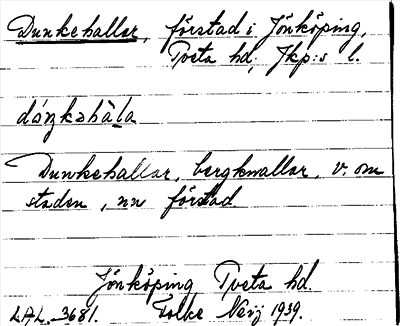 Dunkehallar, förstad i Jönköping,
Tveta hd; Jkp:s l.
dóŋkəhàla
Dunkehallar, bergknallar, v. om
staden, nu förstad
Jönköping Tveta hd.
LAL. 3681. Folke Neij 1939.